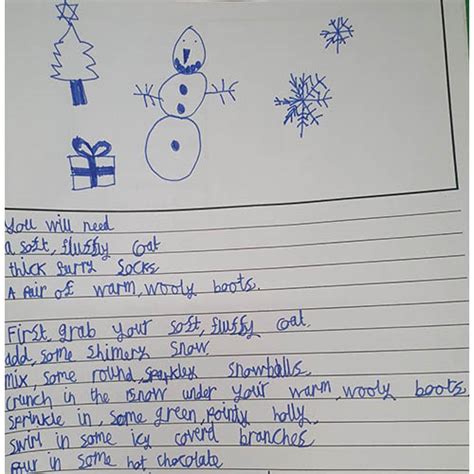 You will need
a soft, fluffy coat
thick furry socks
A pair of warm, wooly boots.
First, grab your soft, fluffy coat.
add, some shimery snow.
mix, some round, sparkley snowballs.
crunch in the snow under your warm, wooly boots.
sprinkle in, some green, poin​ty holly.
swirl in some icy coverd branches.
Pour in some hot chocolate